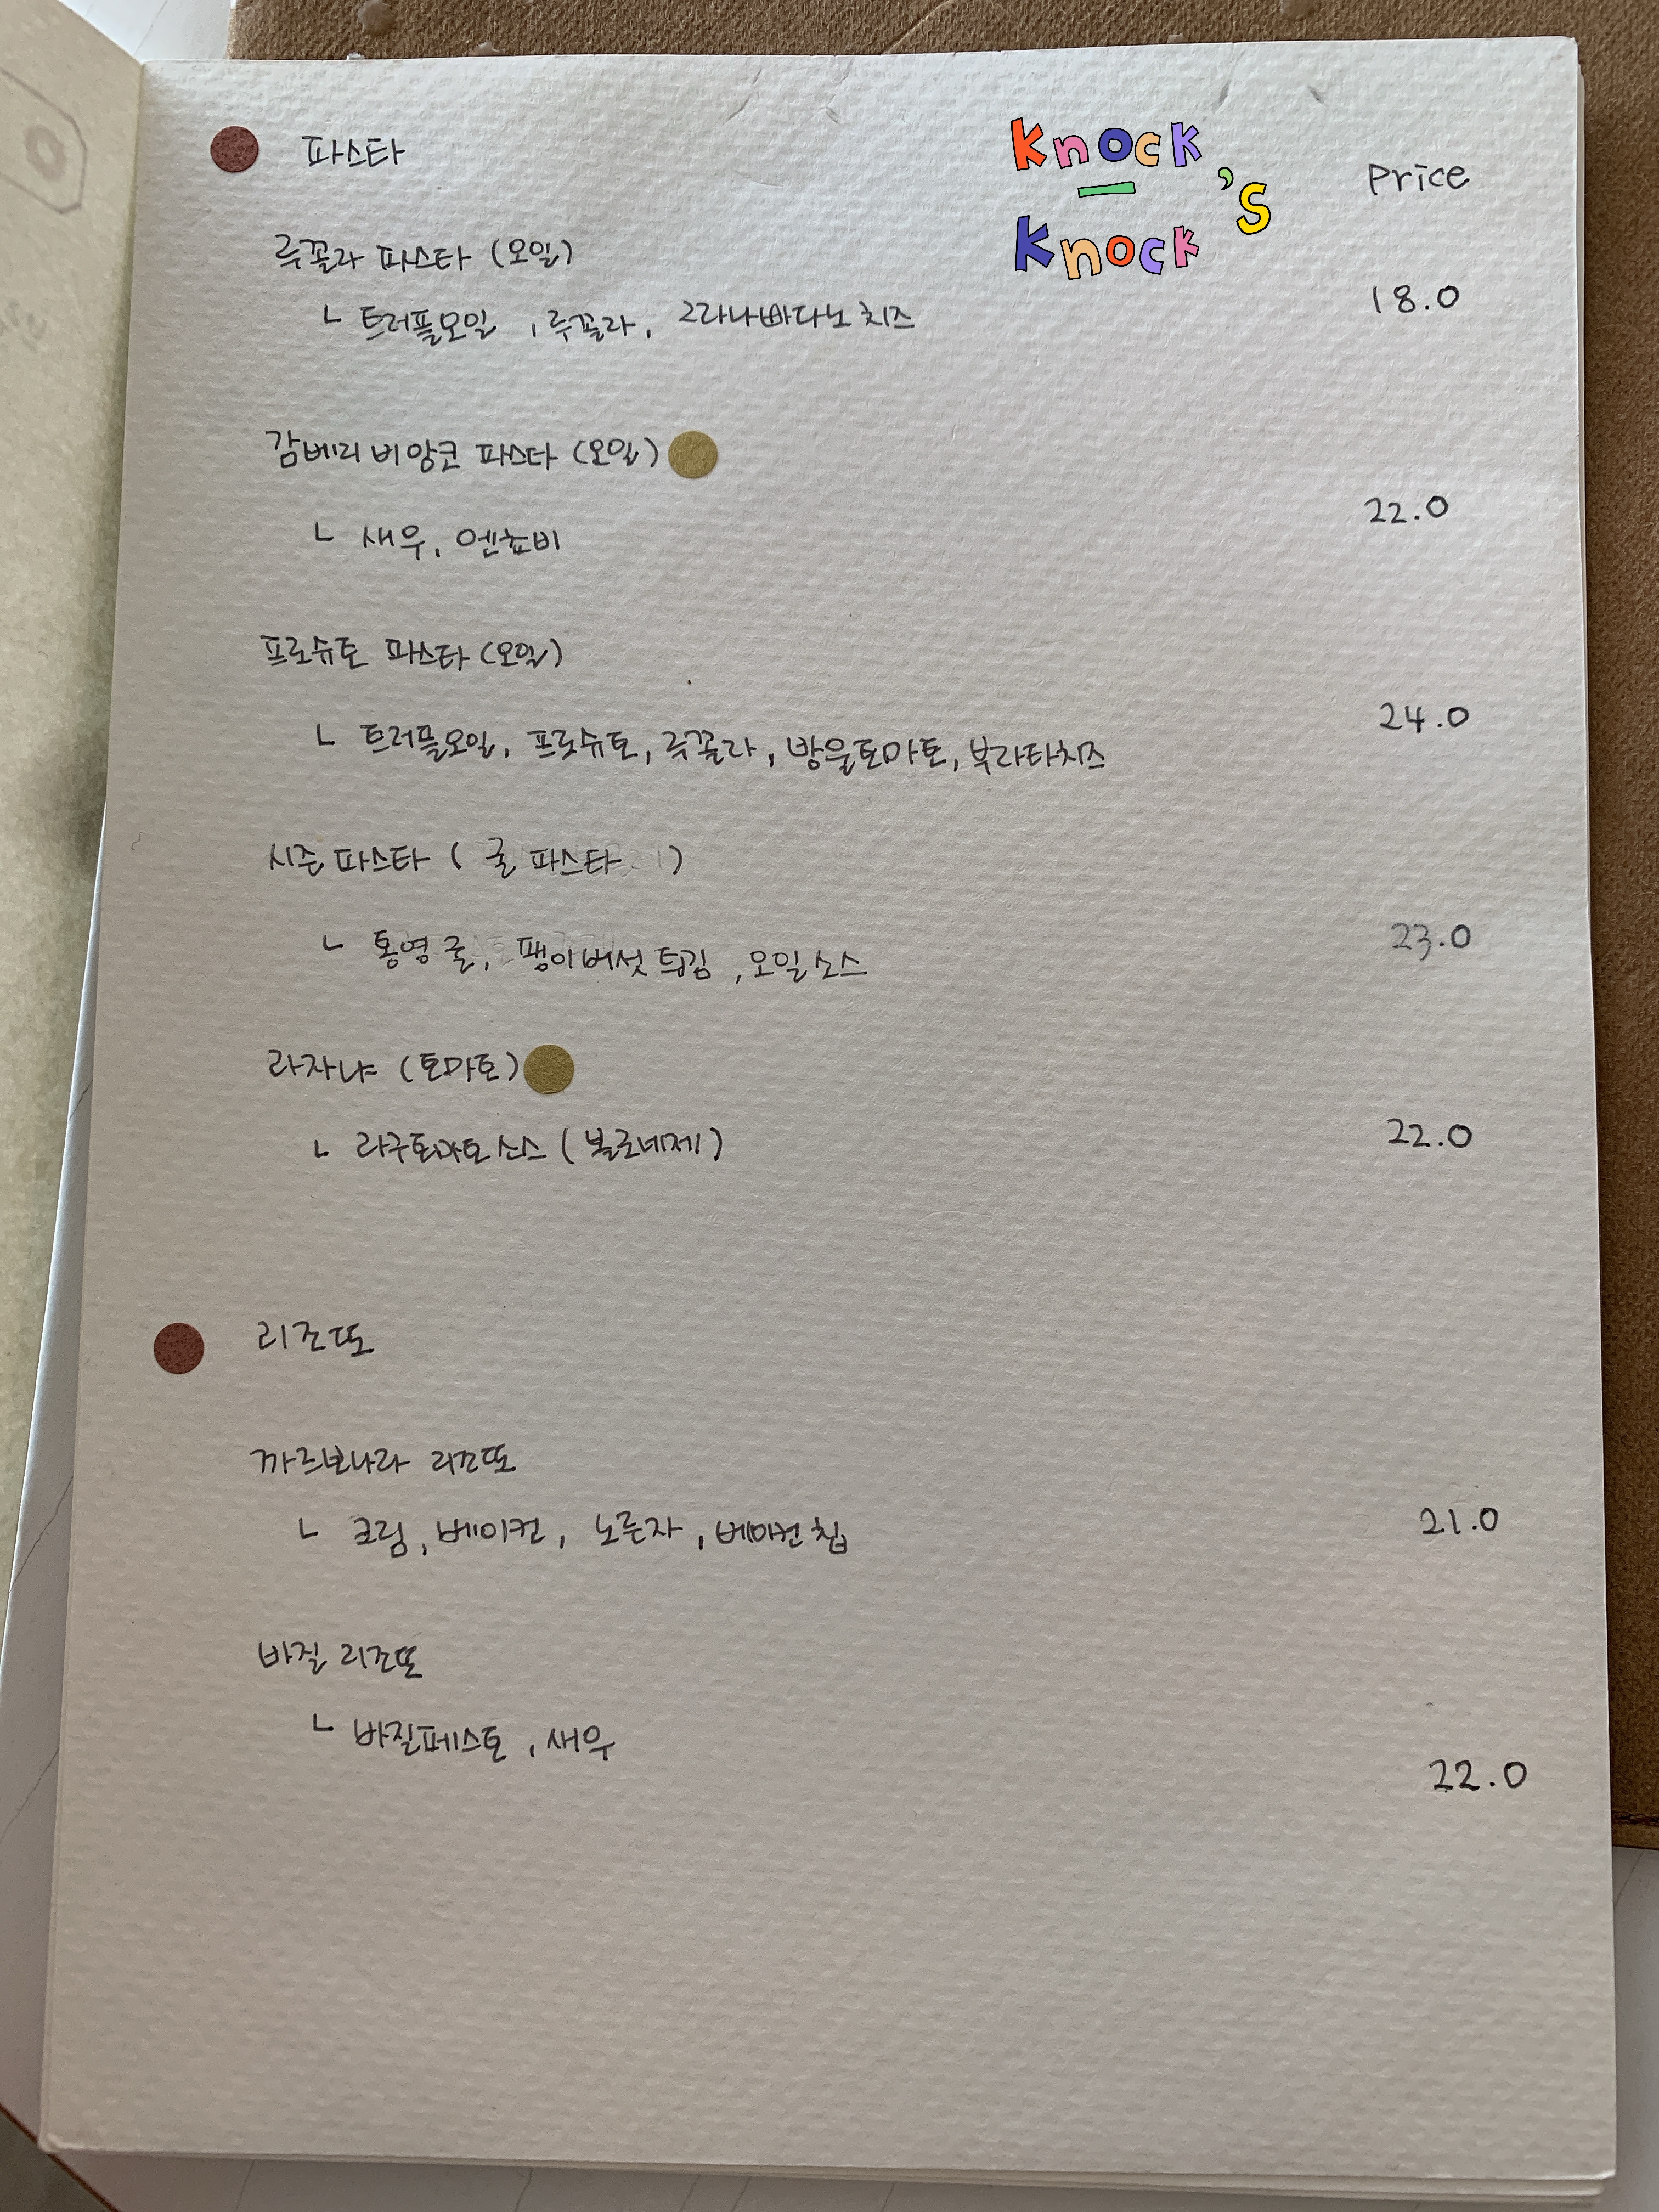 파스타
Knock
-
Knock
's
Price
루꼴라 파스타 (오일)
ㄴ 트러플오일, 루꼴라, 그라나빠다노 치즈
18.0
감베리 비앙코 파스타 (오일)
ㄴ 새우, 엔쵸비
22.0
프로슈토 파스타 (오일)
ㄴ 트러플오일, 프로슈토, 루꼴라, 방울토마토, 부라타치즈
24.0
시즌 파스타 ( 굴 파스타 )
ㄴ 통영 굴, 팽이버섯 튀김, 오일소스
23.0
라자냐 (토마토)
ㄴ 라구토마토 소스 ( 볼로네제 )
22.0
리조또
까르보나라 리조또
ㄴ 크림, 베이컨, 노른자, 베이컨 칩
21.0
바질 리조또
ㄴ 바질페스토, 새우
22.0